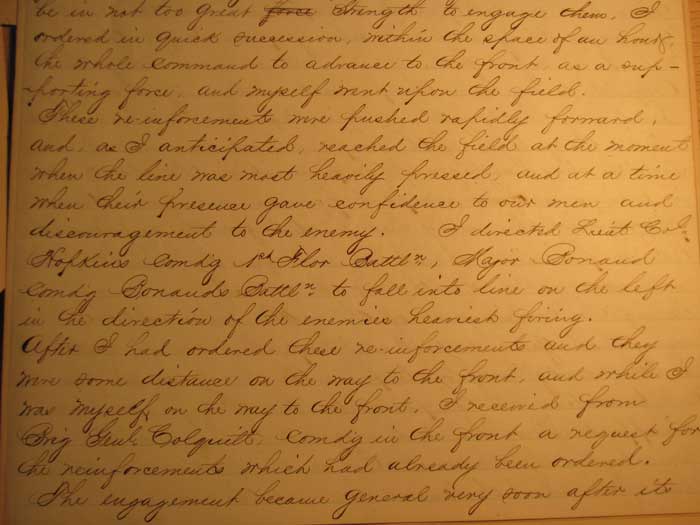 be in not too great force strength to engage them, I
ordered in quick succession, within the space of an hour,
the whole command to advance to the front, as a sup-
-porting force, and myself went upon the field.
These re-inforcements were pushed rapidly forward,
and, as I anticipated, reached the field at the moment
when the line was most heavily pressed, and at a time
when their presence gave confidence to our men and
discouragement to the enemy. I directed Lieut Col
Hopkins comdg 1st Flor Battln, Major Bonaud
comdg Bonauds Battln to fall into line on the left
in the direction of the enemies heaviest firing.
After I had ordered these re-inforcements and they
were some distance on the way to the front, and while I
was myself, on the way to the front, I received from
Brig Genl Colquitt, comdg in the front a request for
the reinforcements which had already been ordered.
The engagement became general very soon after its